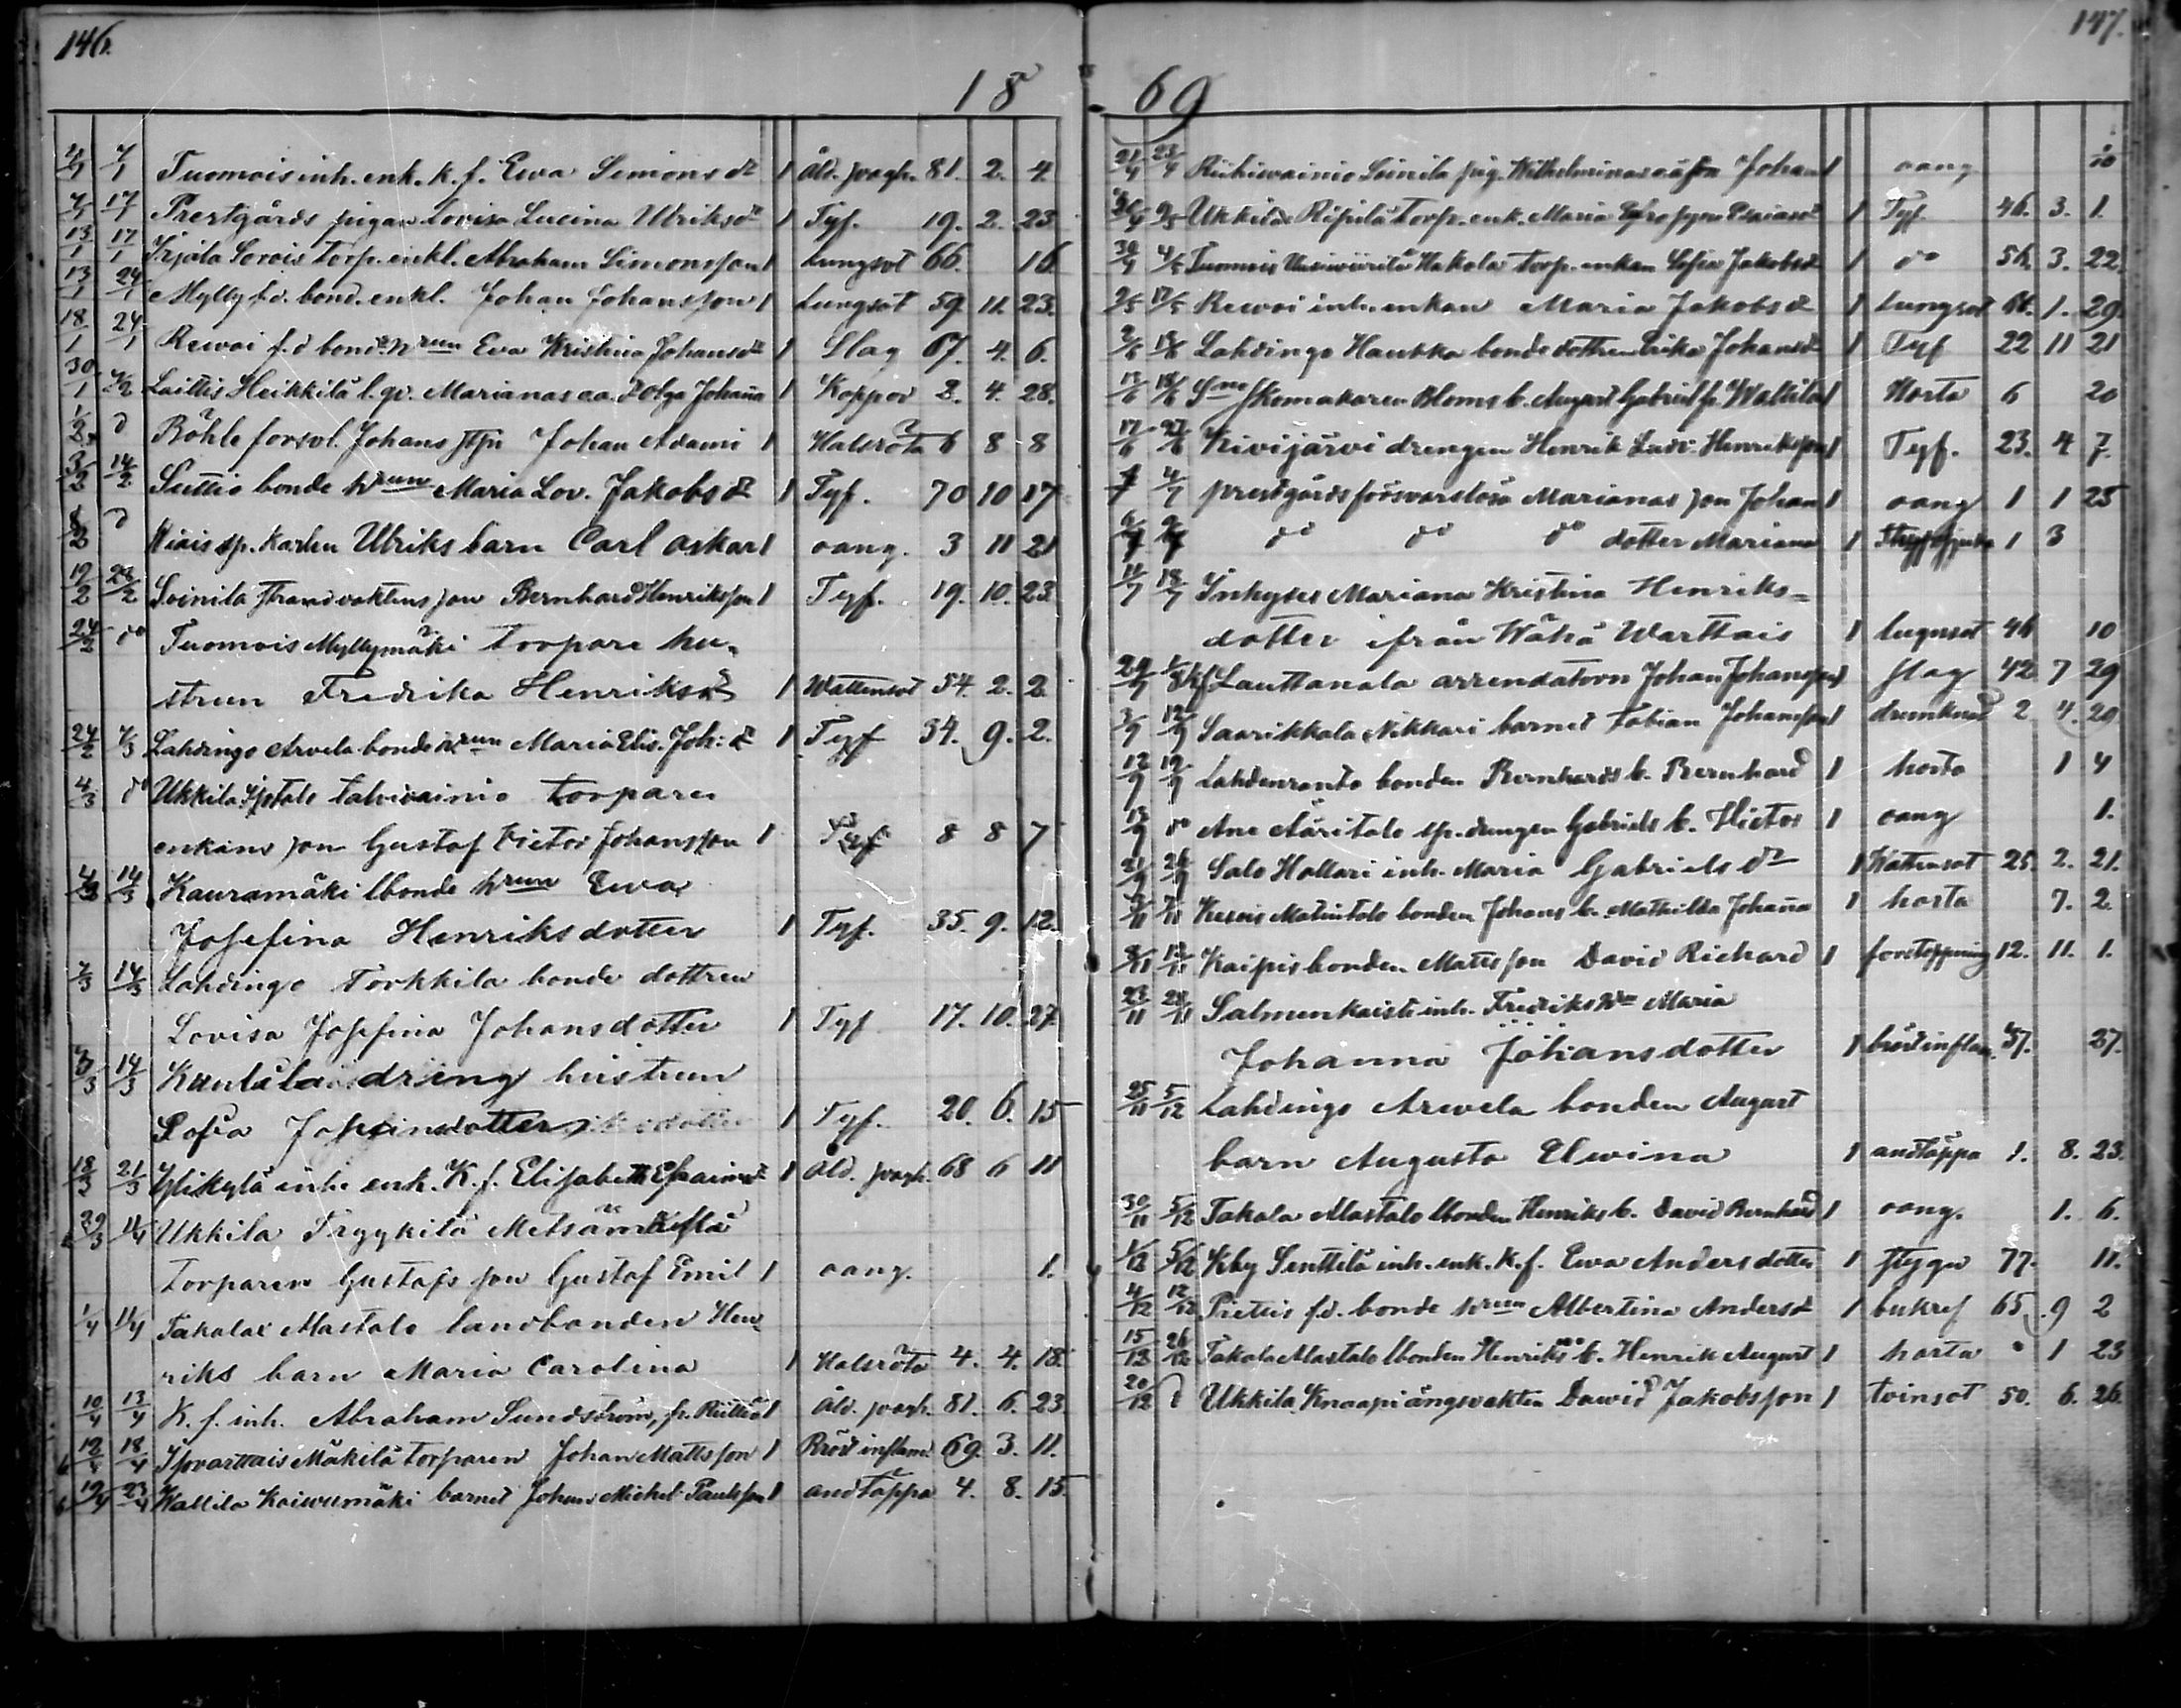 146.
18
4/1 7/1 Tuomois inh. enk. k. f. Ewa Simons dr 1 Åld. swagh. 81. 2. 4.
7/1 17/1 Prestgårds pigan Lovisa Lucina Ulriksdr 1 Tyf. 19. 2. 23
13/1 17/1 Yrjälä Torp. enkl. Abraham Simonsson 1 Lungsot 66. 16.
13/1 24/1 Mylly f.d. bond. enkl. Johan Johansson 1 Lungsot 59. 11. 23.
18/1 24/1 Rewoi f.d bonde hrun Eva Kristina Johansdr 1 Slag 67. 4. 6.
30/1 7/2 Laittis Heikkilä Marianas oä. d Olga Johaña 1 Koppor 2. 4. 28.
1/2 d Röhle forsvl. Johans Johan Adami 1 Halsröta 6 8 8
3/2 14/2 Suttis bonde hrun Maria Lov. Jakobs dr 1 Tyf. 70 10 17
8/2 d sp. karlen Ulriks barn Carl Oskar 1 oang. 3 11 21
19/2 28/2 Soinila strandvaktens son Bernhard Henriksson 1 Tyf. 19. 10. 23
24/2 do Tuomois Myllymäki torpare hu-
strun Fredrika Henriksdr 1 Wattensot 54. 2. 2.
24/2 7/3 Lahdingo Arvela bonde hrun Maria Elis. Joh: dr 1 Tyf 34. 9. 2.
4/3 do Ukkila Talvivainio torpare
enkans son Gustaf Victor Johansson 1 Tyf 8 8 7
4/3 14/3 Kauramäki lbonde hrun Ewa
Josefina Henriksdotter 1 Tyf. 35. 9. 12.
7/3 14/3 Lahdingo Torkkila bonde dottren
Lovisa Josefina Johansdotter 1 Tyf 17. 10. 27.
7/3 14/3 dräng hustrun
Sofia 1 Tyf. 20. 6. 15
18/3 21/3 Ylikylä inh. enk. K. f. Elisabeth Efraimsdr 1 Åld. swagh. 68 6 11
29/3 11/4 Ukkila Trygkilä
torparen Gustafs son Gustaf Emil 1 oang. 1.
1/4 11/4 Takala Mastalo landbonden Hen-
riks barn Maria Carolina 1 Halsröta 4. 4. 18.
10/4 13/4 K. f. inh. Abraham Sundström, fr. 1 Åld. swagh. 81. 6. 23.
12/4 18/4 Isovarttais Mäkilä torparen Johan Mattsson 1 Bröst inflam. 69. 3. 11.
19/4 23/4 Wallila Kaiwumäki barnet Johan Michel Paulsson 1 andtäppa 4. 8. 15.
147.
69
21/4 23/4 Riihiwainio Soinila pig. Wilhelminas oä son Johan 1 oang 1/10
9/5 Ukkila Torp. enk. Maria 1 Tyf 46. 3. 1.
30/4 4/5 Tuomois Hakola torp. enkan Sofia Jakobsdr 1 do 56. 3. 22.
9/5 17/5 Rewoi inh. enkan Maria Jakobs dr 1 Lungsot 66. 1. 29.
2/6 13/6 Lahdingo Haukka bonde dottren Erika Johansdr 1 Tyf 22 11 21
17/6 18/6 Skomakaren Bloms b. August Gabriel fr. Wallila 1 Hosta 6 20
17/6 27/6 Kivijärvi drengen Henrik Ludv. Henriksson 1 Tyf. 23. 4 7.
4/7 prestgårds försvarslösa Marianas son Johan 1 oang 1 1 25
do do do dotter Mariana 1 1 3
11/7 18/7 Inhyses Mariana Kristina Henriks=
dotter ifrån Wähä Warttais 1 lungsot 46 10
29/7 1/8 Kf Lauttanala arrendatorn Johan Johansson 1 slag 42 7 29
3/9 12/9 Saarikkala Nikkari barnet Fabian Johansson 1 drunknad 2 4. 20
12/9 19/9 Lahdenranto bonden Bernhards b. Bernhard 1 hosta 1 4
13/9 do Ane Ääritalo sp. drengen Gabriels b. Victor 1 oang 1.
21/9 26/9 Salo Hallari inh. Maria Gabriels dr 1 Wattensot 25. 2. 21.
3/11 7/11 Matintalo bonden Johans b. Mathilda Johaña 1 hosta 7. 2.
8/11 13/11 Kaipis bonden Matts son David Richard 1 forstoppning 12. 11. 1.
23/11 28/11 Salmenkaista inh. Fredriks hu Maria
Johanna Johansdotter 1 bröstinflam. 37. 27.
25/11 5/12 Lahdingo Arwela bonden August
barn Augusta Elwina 1 andtäppa 1. 8. 23.
30/11 5/12 Takala Mastalo lbonden Henriks b. David Bernhard 1 oang. 1. 6.
1/12 5/12 Kby Senttilä inh. enk. K. f. Ewa Andersdotter 1 styggn 77. 11.
4/12 12/12 Pietiis f.d. bonde hrun Albertina Andersdr 1 bukref 65. 9 2
15/12 26/12 Takala Mastalo lbonden Henriks b. Henrik August 1 hosta " 1 23
20/12 d Ukkila Knaapi ängsvakten Dawid Jakobsson 1 tvinsot 50. 6. 26.